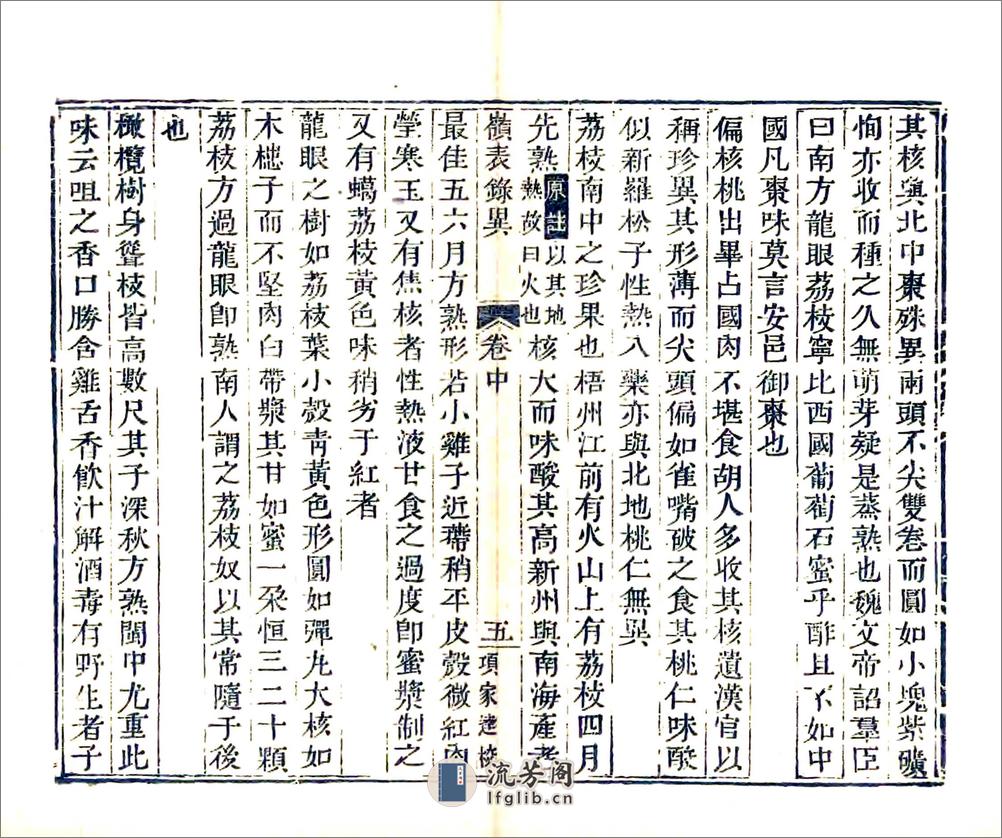 其核與北中棗殊異兩頭不尖雙卷而圓如小塊紫礦
恂亦收而種之久無萌芽疑是蒸熟也魏文帝詔羣臣
曰南方龍眼荔枝寧比西國葡萄石蜜乎酢且不如中
國凡棗味莫言安邑御棗也
偏核桃出畢占國肉不堪食胡人多收其核遺漢官以
稱珍異其形薄而尖頭偏如雀嘴破之食其桃仁味酸
似新羅松子性熱入藥亦與北地桃仁無異
荔枝南中之珍果也梧州江前有火山上有荔枝四月
先熟原註以其地熱故曰火也核大而味酸其高新州與南海產者
嶺表錄異 卷中 五 項家達校
最佳五六月方熟形若小雞子近蔕稍平皮殼微紅肉
瑩寒玉又有焦核者性熱液甘食之過度卽蜜漿制之
又有蠟荔枝黃色味稍劣于紅者
龍眼之樹如荔枝葉小殼靑黃色形圓如彈丸大核如
木槵子而不堅肉白帶漿其甘如蜜一朶恒三二十顆
荔枝方過龍眼卽熟南人謂之荔枝奴以其常隨于後
也
橄欖樹身聳枝皆高數尺其子深秋方熟閩中尤重此
味云咀之香口勝含雞舌香飮汁解酒毒有野生者子
流芳阁
lfglib.cn